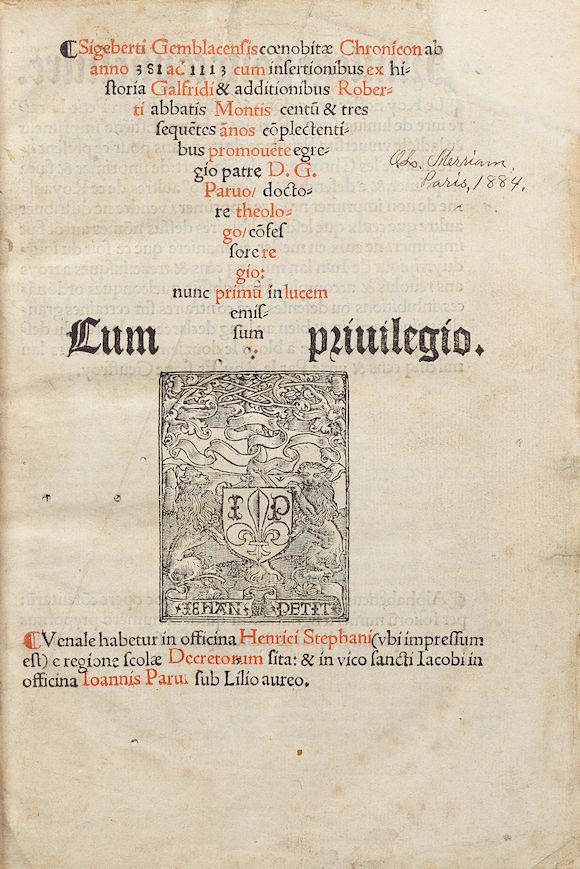 ⸿Sigeberti Gemblacensis cœnobitæ Chronicon ab
anno 381 ad 1113 cum insertionibus ex hi-
storia Galfridi & additionibus Rober-
ti abbatis Montis centũ & tres
sequẽtes ãnos cõplectenti-
bus promouẽte egre-
gio patre D. G.
Paruo/ docto-
re theolo-
go/ cõfes
sore re
gio:
nunc primũ in lucem
emis-
sum
Cum priuilegio.
Chs. Merriam,
Paris, 1884.
I P
IEHAN PETIT
⸿Venale habetur in officina Henrici Stephani (vbi impressum
est) e regione scolæ Decretorum sita: & in vico sancti Iacobi in
officina Ioannis Parui sub Lilio aureo.